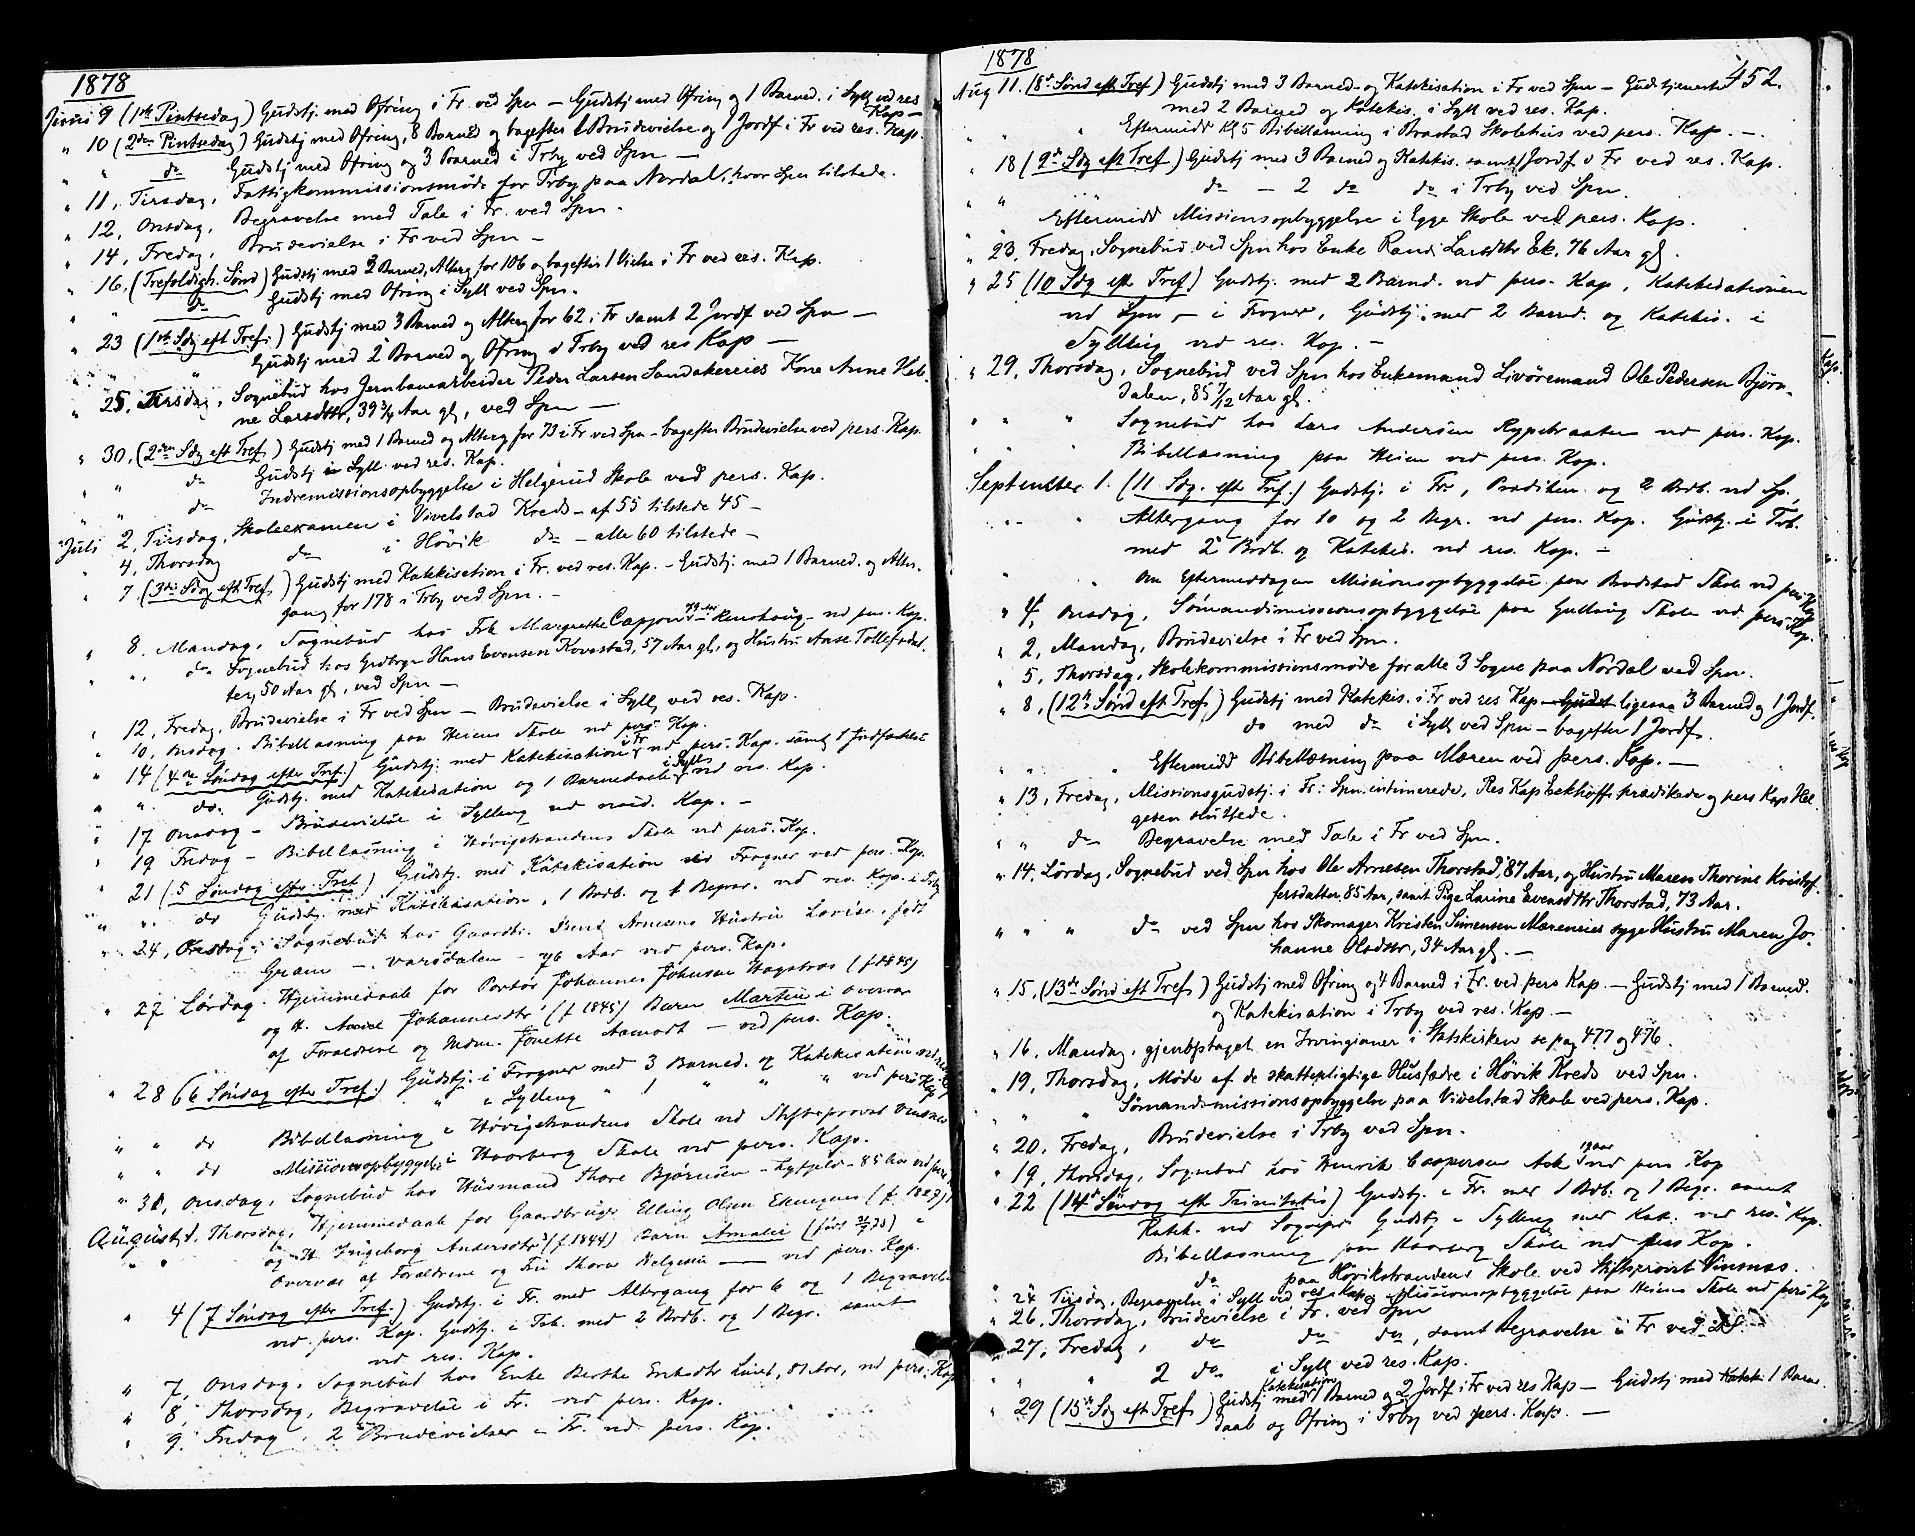 1878
Juni 9 (1ste Pintsedag) Gudstj. med Ofring i Fr. ved Spn – Gudstj med Ofring og 1 Barned. i Syll ved res Kap –
" 10 (2den Pintsedag) Gudstj med Ofring, 8 Barned og bagefter 1 Brudevielse og 1 Jordf i Fr ved res. Kap.
" " do Gudstj med Ofring og 3 Barned i Trby ved Spn –
" 11, Tirsdag, Fattigkommissionsmøde for Trby paa Nordal, hvor Spn tilstede.
" 12, Onsdag, Begravelse med Tale i Fr. ved Spn.
" 14, Fredag, Brudevielse i Fr ved Spn –
" 16, (Trefoldigh. Sønd) Gudstj med 2 Barned, Alterg for 106 og bagefter 1 Vielse i Fr ved res. Kap.
" " do Gudstj med Ofring i Syll ved Spn.
" 23 (1ste Sdg eft Tref.) Gudstj med 3 Barned og Alterg for 62, i Fr samt 2 Jordf ved Spn –
" " " Gudstj med 2 Barned og Ofring i Trby ved res Kap –
" 25, Tirsdag, Sognebud hos Jernbanearbeider Peder Larsen Sandakereies Kone Anne Hel-
ne Larsdttr, 39 3/4 Aar gl, ved Spn –
" 30, (2den Sdg eft Tref.) Gudstj med 1 Barned og Alterg for 73 i Fr ved Spn – bagefter Brudevielse ved pers. Kap.
" " do Gudstj i Syll ved res. Kap.
" " do Indremissionsopbyggelse i Helgerud Skole ved pers. Kap.
Juli 2, Tirsdag, Skoleexamen i Vivelstad Kreds – af 55 tilstede 45 –
" 4, Thorsdag do i Høvik do – alle 60 tilstede –
" 7 (3die Sdag eft Tref.) Gudstj med Katekisation i Fr. ved res. Kap. – Gudstj. med 1 Barned. og Alter-
gang for 178 i Trby ved Spn. –
" 8, Mandag, Sognebud hos Frk Margrethe Cappon 79 Aar ved pers. Kap.
" " do Sognebud hos Grdbrgr Hans Evensen Kovestad, 57 Aar gl, og Hustru Aase Tollefsdat-
ter, 50 Aar gl, ved Spn –
" 12, Fredag, Brudevielse i Fr ved Spn – Brudevielse i Syll, ved res. Kap.
" 10, Onsdag. Bibellæsning paa Heiens Skole ved pers. Kap.
" 14 (4de Søndag efter Tref.) Gudstj. med Katekisation i Fr. ved pers. Kap. samt 1 Jordfæstelse
" " do. Gudstj. med Katekisation og 1 Barnedaab i Sylli ved res. Kap.
" 17 Onsdag – Brudevielse i Sylling ved resid. Kap. –
" 19 Fredag – Bibellæsning i Høvigstrandens Skole ved pers. Kap.
" 21 (5 Søndag efter Tref.) Gudstj. med Katekisation i Frogner ved pers. Kap.
" " do Gudstj. med Katekisation, 1 Brdb. og 1 Begrav. ved res. Kap. i Trby
" 24, Onsdag – Sognebud hos Gaardbr. Bent Arnesens Hustru Lovise, født
Gram – Varsdalen – 76 Aar ved pers. Kap.
" 27 Lørdag. Hjemmedaab for Portør Johannes Johnsen Hagstras (f. 1845)
og H. Anne Johannesdtr (f. 1845) Barn Martin i Overvær
af Forældrene og Mdm. Jonette Aamodt – ved pers. Kap.
" 28 (6 Søndag efter Tref.) Gudstj. i Frogner med 3 Barned. og Katekisation ved res. Kap.
" " Sylling " 1 " " " ved pers. Kap
" " do Bibellæsning i Høvigstrandens Skole ved Stiftsprovst Vinsnes
" " do Missionsopbyggelse i Haarberg Skole ved pers. Kap.
" 31, Onsdag, Sognebud hos Husmand Thore Bjørnsen – – 85 Aar ved pers.
August 1, Thorsdag, Hjemmedaab for Gaardbruger Elling Olsen (f. 1847)
og H. Ingeborg Andersdtr (f. 1844) Barn Amalie (født)
Overvær af Forældrene og Fru Thora Helgesen – ved pers. Kap.
" 4 (7 Søndag efter Tref.) Gudstj. i Fr. med Altergang for 6 og 1 Begravelse
ved pers. Kap. Gudstj. i Trb. med 2 Brdb. og 1 Begr. samt
ved res. Kap.
" 7, Onsdag. Sognebud hos Enke Berthe Lund, 81 Aar, ved pers. Kap
" 8, Thorsdag, Begravelse i Fr. ved pers. Kap.
" 9, Fredag, 2 Brudevielser i Fr. ved pers. Kap.
1878
452.
Aug 11. (8de Sønd eft Tref) Gudstj med 3 Barned. og Katekisation i Fr ved Spn – Gudstjeneste
med 2 Barned og Katekis. i Syll ved res. Kap.
" " Eftermidd Kl 5 Bibellæsning i Brastad Skolehus ved pers. Kap. –
" 18 (9de Sdg eft Tref) Gudstj med 3 Barned og Katekis. samt 1 Jordf i Fr ved res. Kap.
" " do – 2 do do i Trby ved Spn.
Eftermidd Missionsopbyggelse i Egge Skole ved pers. Kap.
" 23, Fredag, Sognebud ved Spn hos Enke Randi Larsdttr Ek, 76 Aar gl.
" 25 (10 Sdg eft Tref) Gudstj. med 2 Barnd. ved pers. Kap, Katekisationen
ved Spn – i Frogner, Gudstj. med 2 Barnd. og Katekis. i
Sylling ved res. Kap. –
" 29, Thorsdag, Sognebud ved Spn hos Enkemand Livøremand Ole Pedersen Bjørn-
dalen, 85 7/12 Aar gl.
" " Sognebud hos Lars Andersen Rypebraaten ved pers. Kap.
" " Bibellæsning paa Heien ved pers. Kap.
September 1. (11 Sdg. efter Tref.) Gudstj. i Fr., Prædiken og 2 Brdb. ved Sp.,
" " Altergang for 10 og 2 Begr. ved pers. Kap. Gudstj. i Trb.
med 2 Brdb. og Katekis. ved res. Kap. –
" " Om Eftermiddagen Missionsopbyggelse paa Brastad Skole ved pers Kap
" 4, Onsdag, Sømandsmissionsopbyggelse paa Gullaug Skole ved pers. Kap.
" 2, Mandag, Brudevielse i Fr ved Spn.
" 5, Thorsdag, Skolekommissionsmøde for alle 3 Sogne paa Nordal ved Spn.
" 8, (12te Sønd eft Tref.) Gudstj med Katekis. i Fr ved res Kap – Gudst ligesaa 3 Barned og 1 Jordf.
do med do i Syll ved Spn – bagefter 1 Jordf.
" " Eftermidd Bibellæsning paa Mæren ved pers. Kap. –
" 13, Fredag, Missionsgudstj. i Fr: Spn intimerede, Res Kap Eckhoff prædikede og pers Kap Hel-
gesen sluttede.
" " do Begravelse med Tale i Fr ved Spn.
" 14, Lørdag, Sognebud ved Spn hos Ole Arnesen Thorstad, 87 Aar, og Hustru Maren Thorine Kristof-
fersdatter, 85 Aar, samt Pige Larine Evensdttr Thorstad, 73 Aar.
" " " do ved Spn hos Skomager Kristen Simensen Mæreneies syge Hustru Maren Jo-
hanne Olsdttr, 34 Aar gl. –
" 15, (13de Sønd eft Tref.) Gudstj med Ofring og 4 Barned i Fr. ved pers Kap. – Gudstj med 1 Barned.
og Katekisation i Trby ved res. Kap –
" 16, Mandag, gjenoptaget en Irvingianer i Statskirken se pag 477 og 476.
" 19, Thorsdag, Møde af de skattepligtige Husfædre i Høvik Kreds ved Spn.
" " Sømandsmissionsopbyggelse paa Vivelstad Skole ved pers. Kap.
" 20, Fredag, Brudevielse i Trby ved Spn.
" 19, Thorsdag, Sognebud hos Henrik Caspersen Ask 19 aar ved pers Kap
" 22 (14de Søndag efter Trinitatis) Gudstj. i Fr. med 1 Brdb. og 1 Begr. samt
Katek. ved Sogneprs Gudstj i Sylling med Kat. ved res. Kap.
Bibellæsning paa Haarberg Skole ved pers Kap.
" do paa Høvikstrandens Skole ved Stiftsprovst Vinsnes.
" 24 Tirsdag, Begravelse i Syll ved res Kap og Missionsopbyggelse paa Heiens Skole ved pers Kap
" 26, Thorsdag, Brudevielse i Fr. ved Spn
" 27, Fredag, do do do, samt Begravelse i Fr ved
" " 2 do i Syll ved res. Kap.
" 29 (15de Sdg eft Tref) Gudstj med Katekisation 1 Barned og 2 Jordf. i Fr ved res Kap – Gudstj med Katek. 1 Barne-
daab og Ofring i Trby ved pers. Kap. –